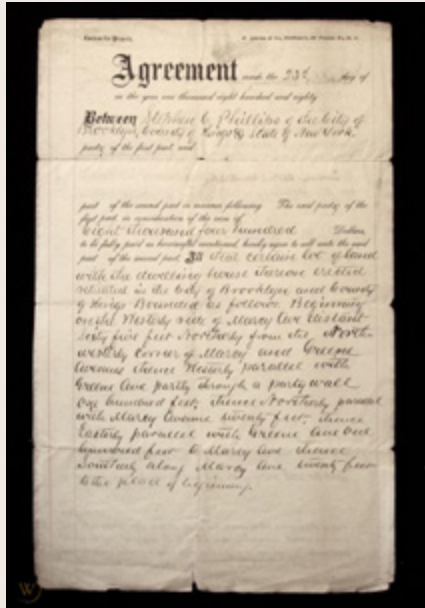 Agreement made the 23d day of
in the year one thousand eight hundred and eighty
Between Stephen C. Phillips of the City of
Brooklyn, County of Kings & State of New York
party of the first part, and
part of the second part in manner following The said party of the
first part in consideration of the sum of
Eight thousand four hundred Dollars
to be fully paid as hereinafter mentioned, hereby agrees to sell unto the said
part of the second part All that certain lot of land
with the dwelling house thereon erected
situated in the City of Brooklyn and County
of Kings Bounded as follows Beginning
on the Westerly side of Marcy Ave distant
sixty five feet Northerly from the North
westerly corner of Marcy and Greene
Avenues thence Westerly parallel with
Greene Ave partly through a party wall
one hundred feet, thence Northerly parallel
with Marcy Avenue twenty feet, thence
Easterly parallel with Greene Ave one
hundred feet to Marcy Ave thence
Southerly along Marcy Ave twenty feet
to the place of beginning.
W